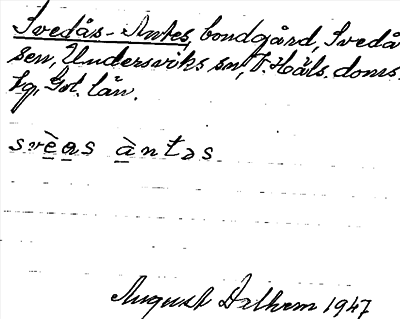 Svedås-Antes, bondgård, Svedå
sen, Undersviks sn, V. Häls. doms.
hg, Gvl. län.
svèas àntəs
August Dalhem 1947